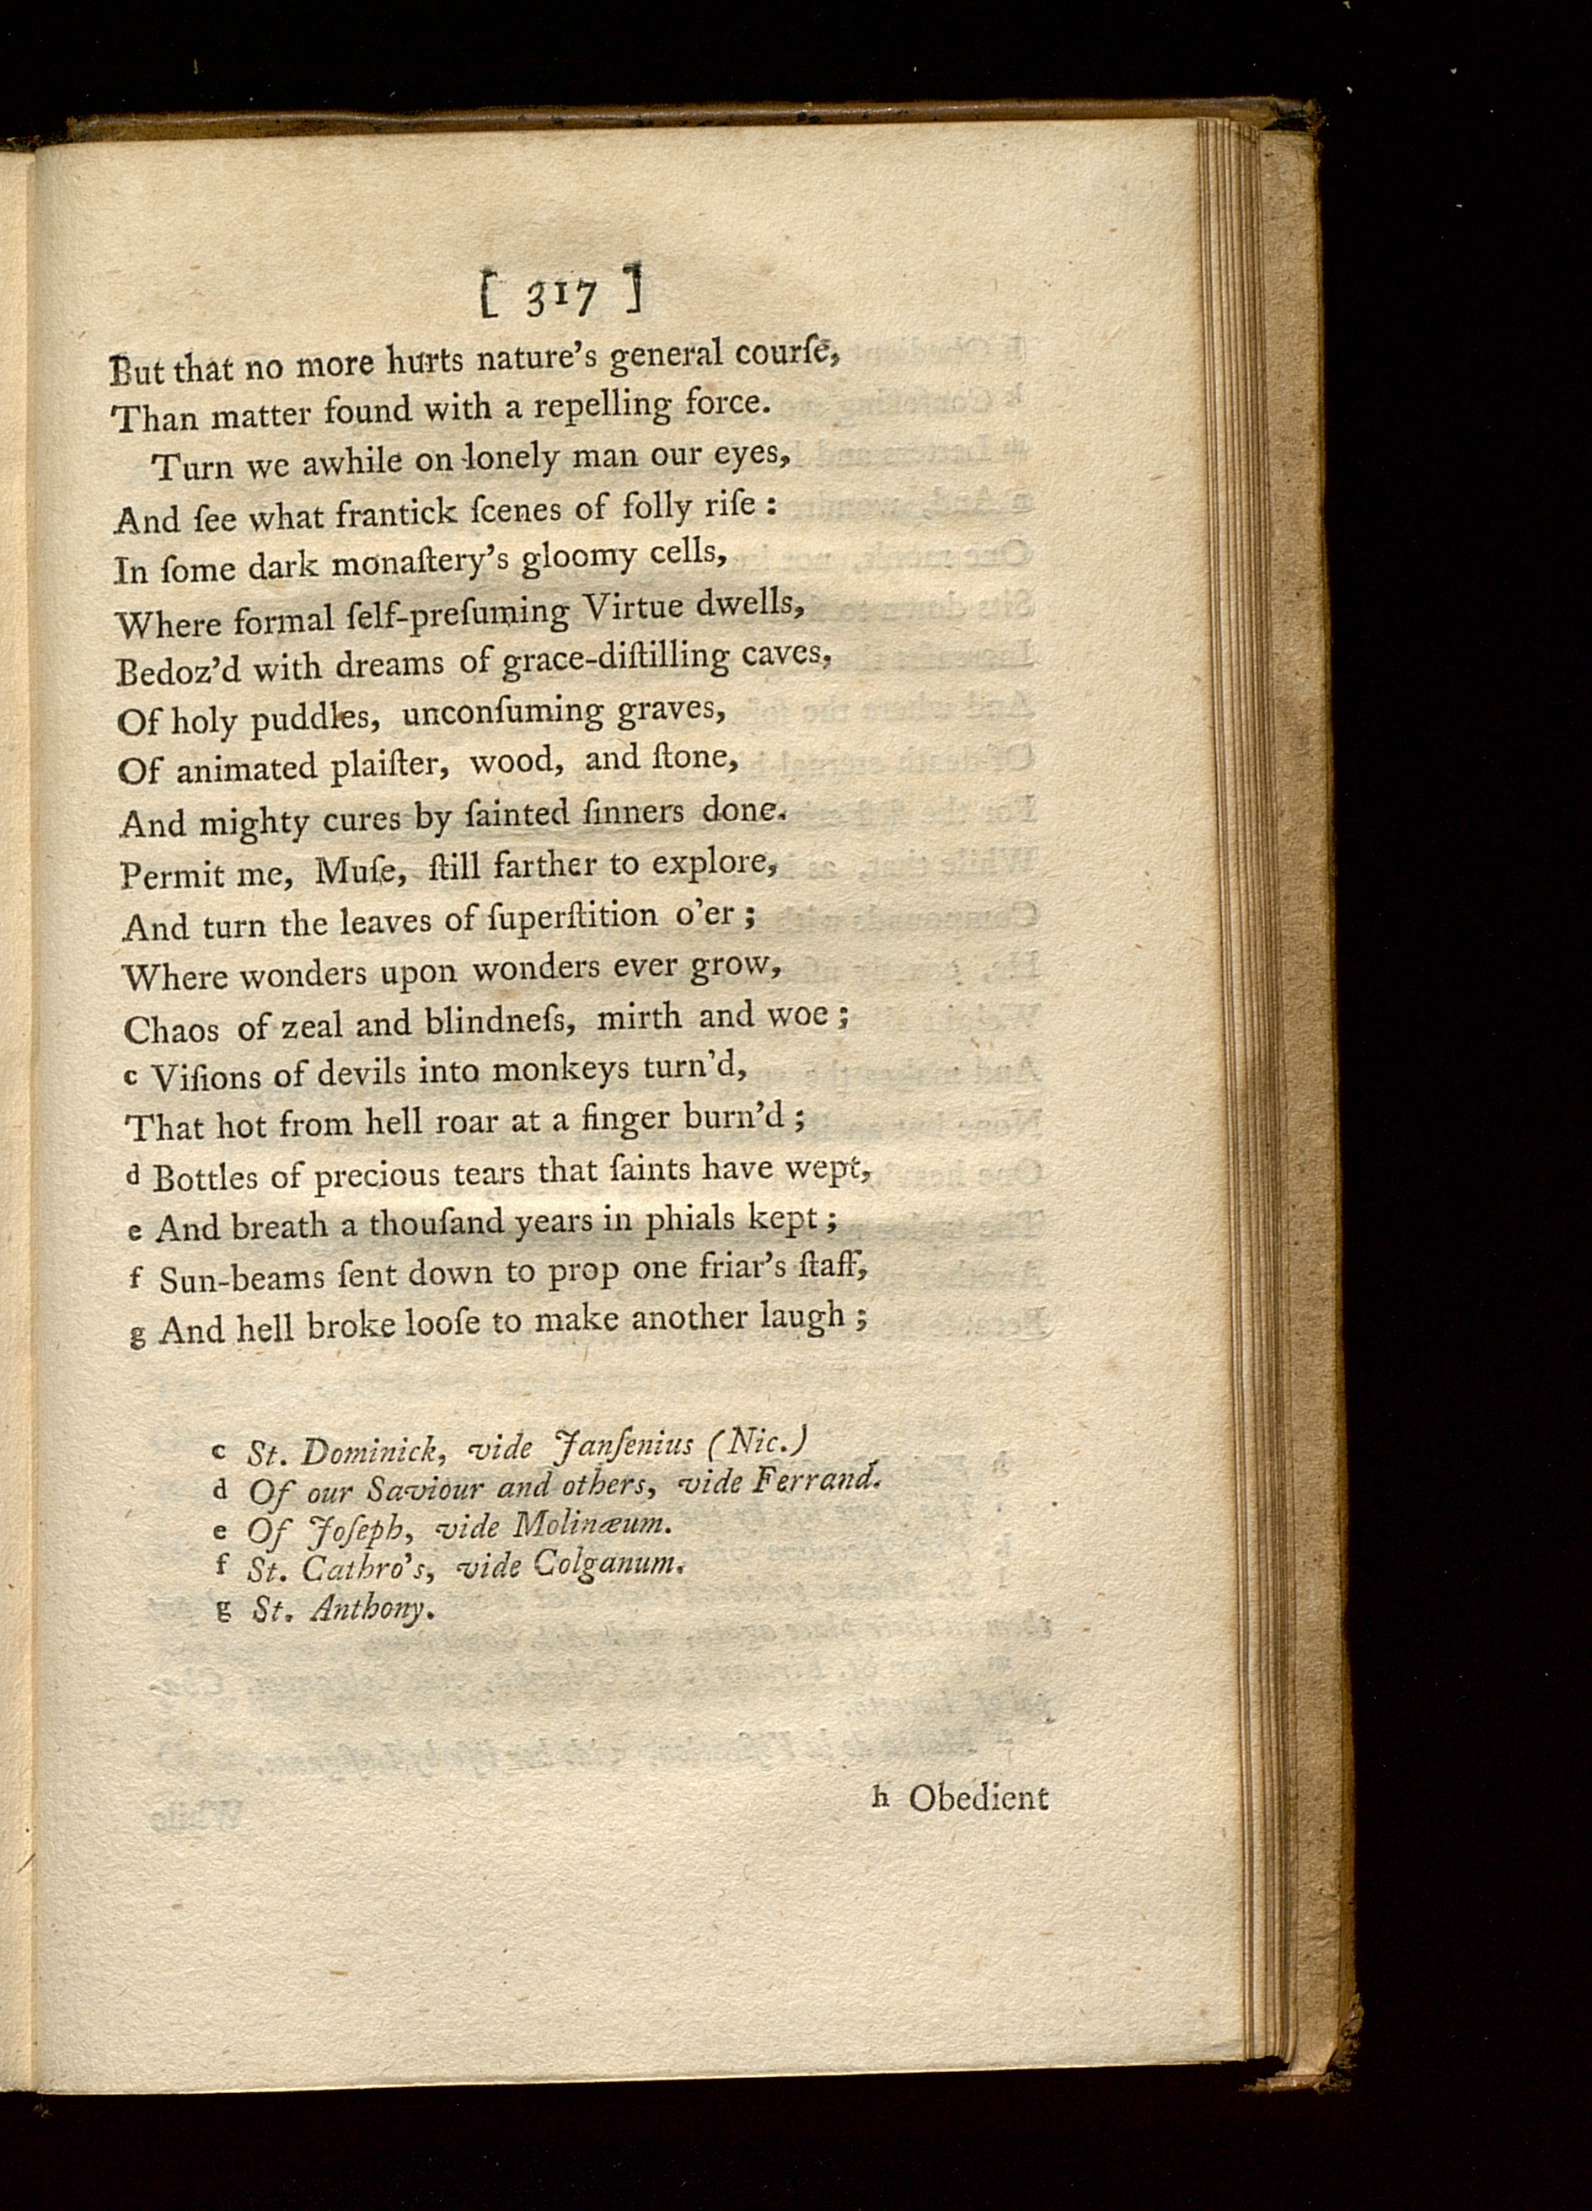 [ 317 ]
But that no more hurts nature's general courſe,
Than matter found with a repelling force.
Turn we awhile on lonely man our eyes,
And ſee what frantick ſcenes of folly riſe :
In ſome dark monaſtery's gloomy cells,
Where formal ſelf-preſuming Virtue dwells,
Bedoz'd with dreams of grace-diſtilling caves,
Of holy puddles, unconſuming graves,
Of animated plaiſter, wood, and ſtone,
And mighty cures by ſainted ſinners done.
Permit me, Muſe, ſtill farther to explore,
And turn the leaves of ſuperſtition o'er ;
Where wonders upon wonders ever grow,
Chaos of zeal and blindneſs, mirth and woe ;
c Viſions of devils into monkeys turn'd,
That hot from hell roar at a finger burn'd ;
d Bottles of precious tears that ſaints have wept,
e And breath a thouſand years in phials kept ;
f Sun-beams ſent down to prop one friar's ſtaff,
g And hell broke looſe to make another laugh ;
c St. Dominick, vide Janſenius (Nic.)
d Of our Saviour and others, vide Ferrand.
e Of Joſeph, vide Molinæum.
f St. Cathro's, vide Colganum.
g St. Anthony.
h Obedient